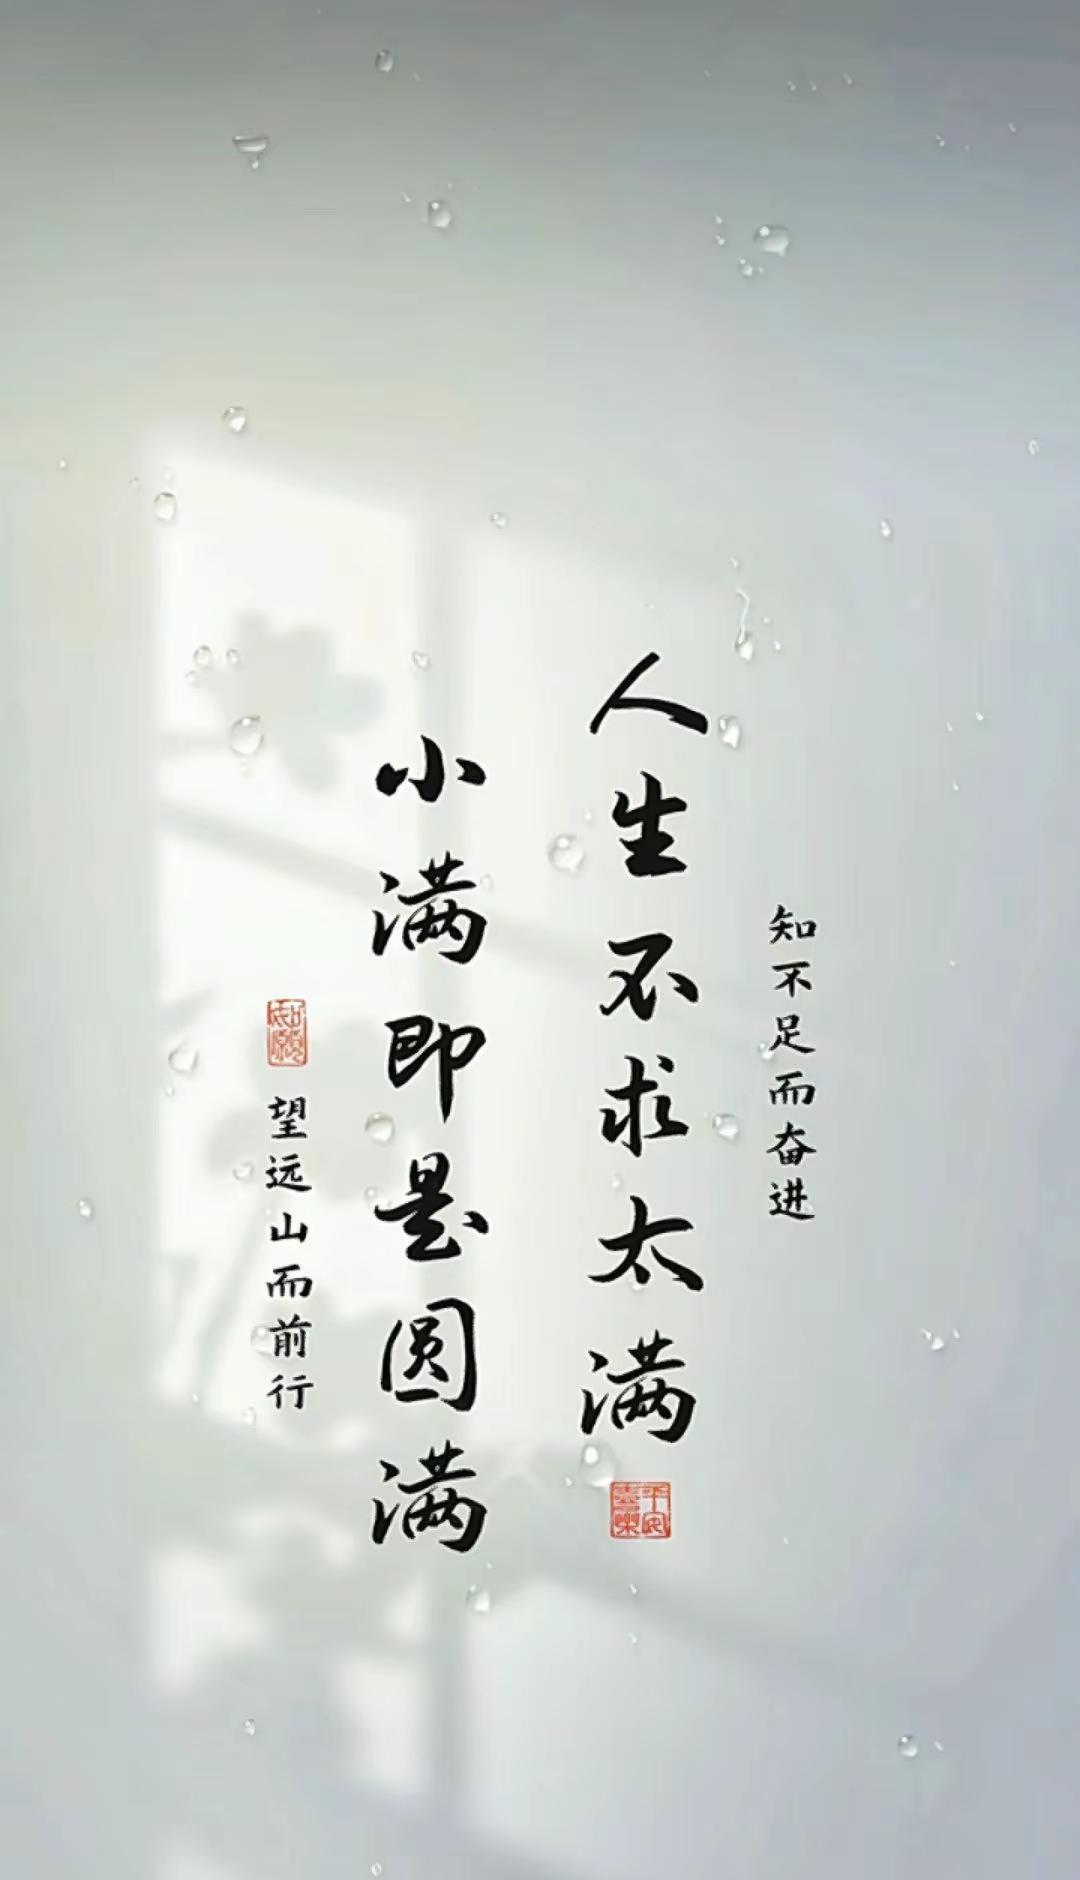 知不足而奋进
人生不求太满
平安喜樂
小满即是圆满
如願
望远山而前行